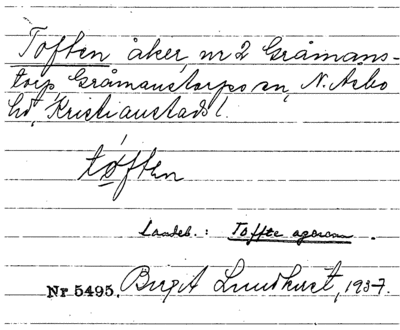 Toften åker, nr 2 Gråmans-
torp, Gråmanstorps sn, N. Åsbo
hd, Kristianstads l.
tøften
Landeb.: Toffte ageren.
Nr 5495. Birgit Lundkvist, 1937.